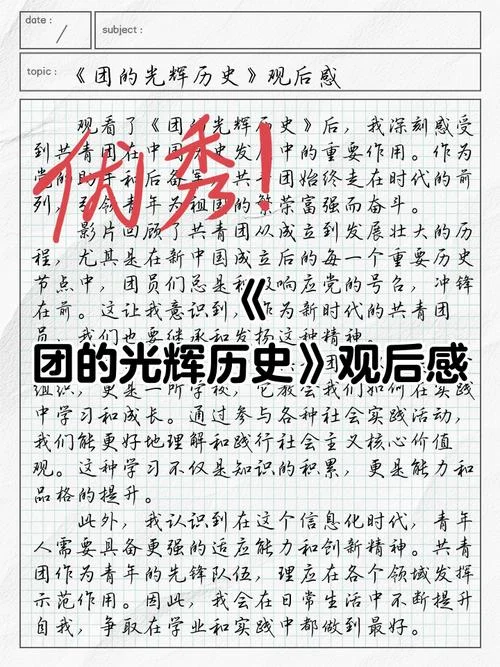 date :
subject :
topic :
《团的光辉历史》观后感
观看了《团的光辉历史》后，我深刻感受
到共青团在中国历史发展中的重要作用。作为
党的助手和后备军，共青团始终走在时代的前
列，引领青年为祖国的繁荣富强而奋斗。
优秀！
影片回顾了共青团从成立到发展壮大的历
程，尤其是在新中国成立后的每一个重要历史
节点中，团员们总是积极响应党的号召，冲锋
在前。这让我意识到，作为新时代的共青团
员，我们也要继承和发扬这种精神。
《
团的光辉历史》观后感
组织，更是一所学校，它教会我们如何在实践
中学习和成长。通过参与各种社会实践活动，
我们能更好地理解和践行社会主义核心价值
观。这种学习不仅是知识的积累，更是能力和
品格的提升。
此外，我认识到在这个信息化时代，青年
人需要具备更强的适应能力和创新精神。共青
团作为青年的先锋队伍，理应在各个领域发挥
示范作用。因此，我会在日常生活中不断提升
自我，争取在学业和实践中都做到最好。